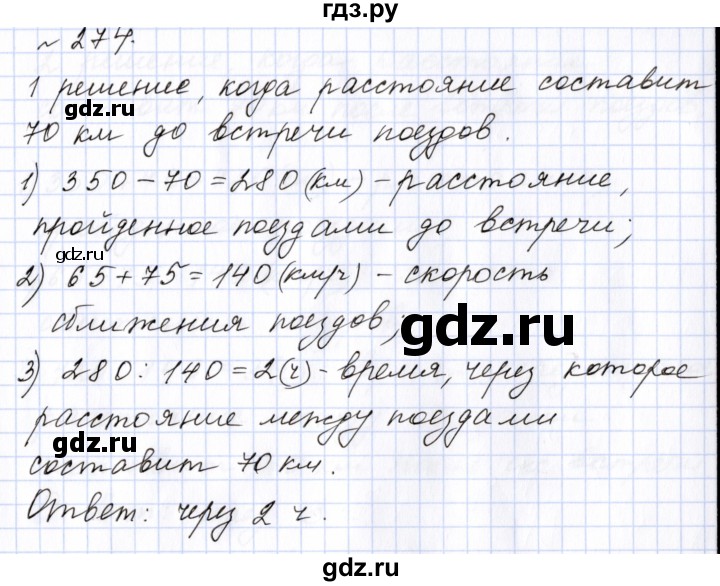 гдз.ру
№ 274.
1 решение, когда расстояние составит
gdz.ru
70 км до встречи поездов.
1) 350 - 70 = 280 (км) - расстояние,
пройденное поездами до встречи;
gdz.ru
2) 65 + 75 = 140 (км/ч) - скорость
сближения поездов;
gdz.ru
3) 280 : 140 = 2 (ч) - время, через которое
расстояние между поездами
gdz.ru
составит 70 км.
Ответ: через 2 ч.
gdz.ru